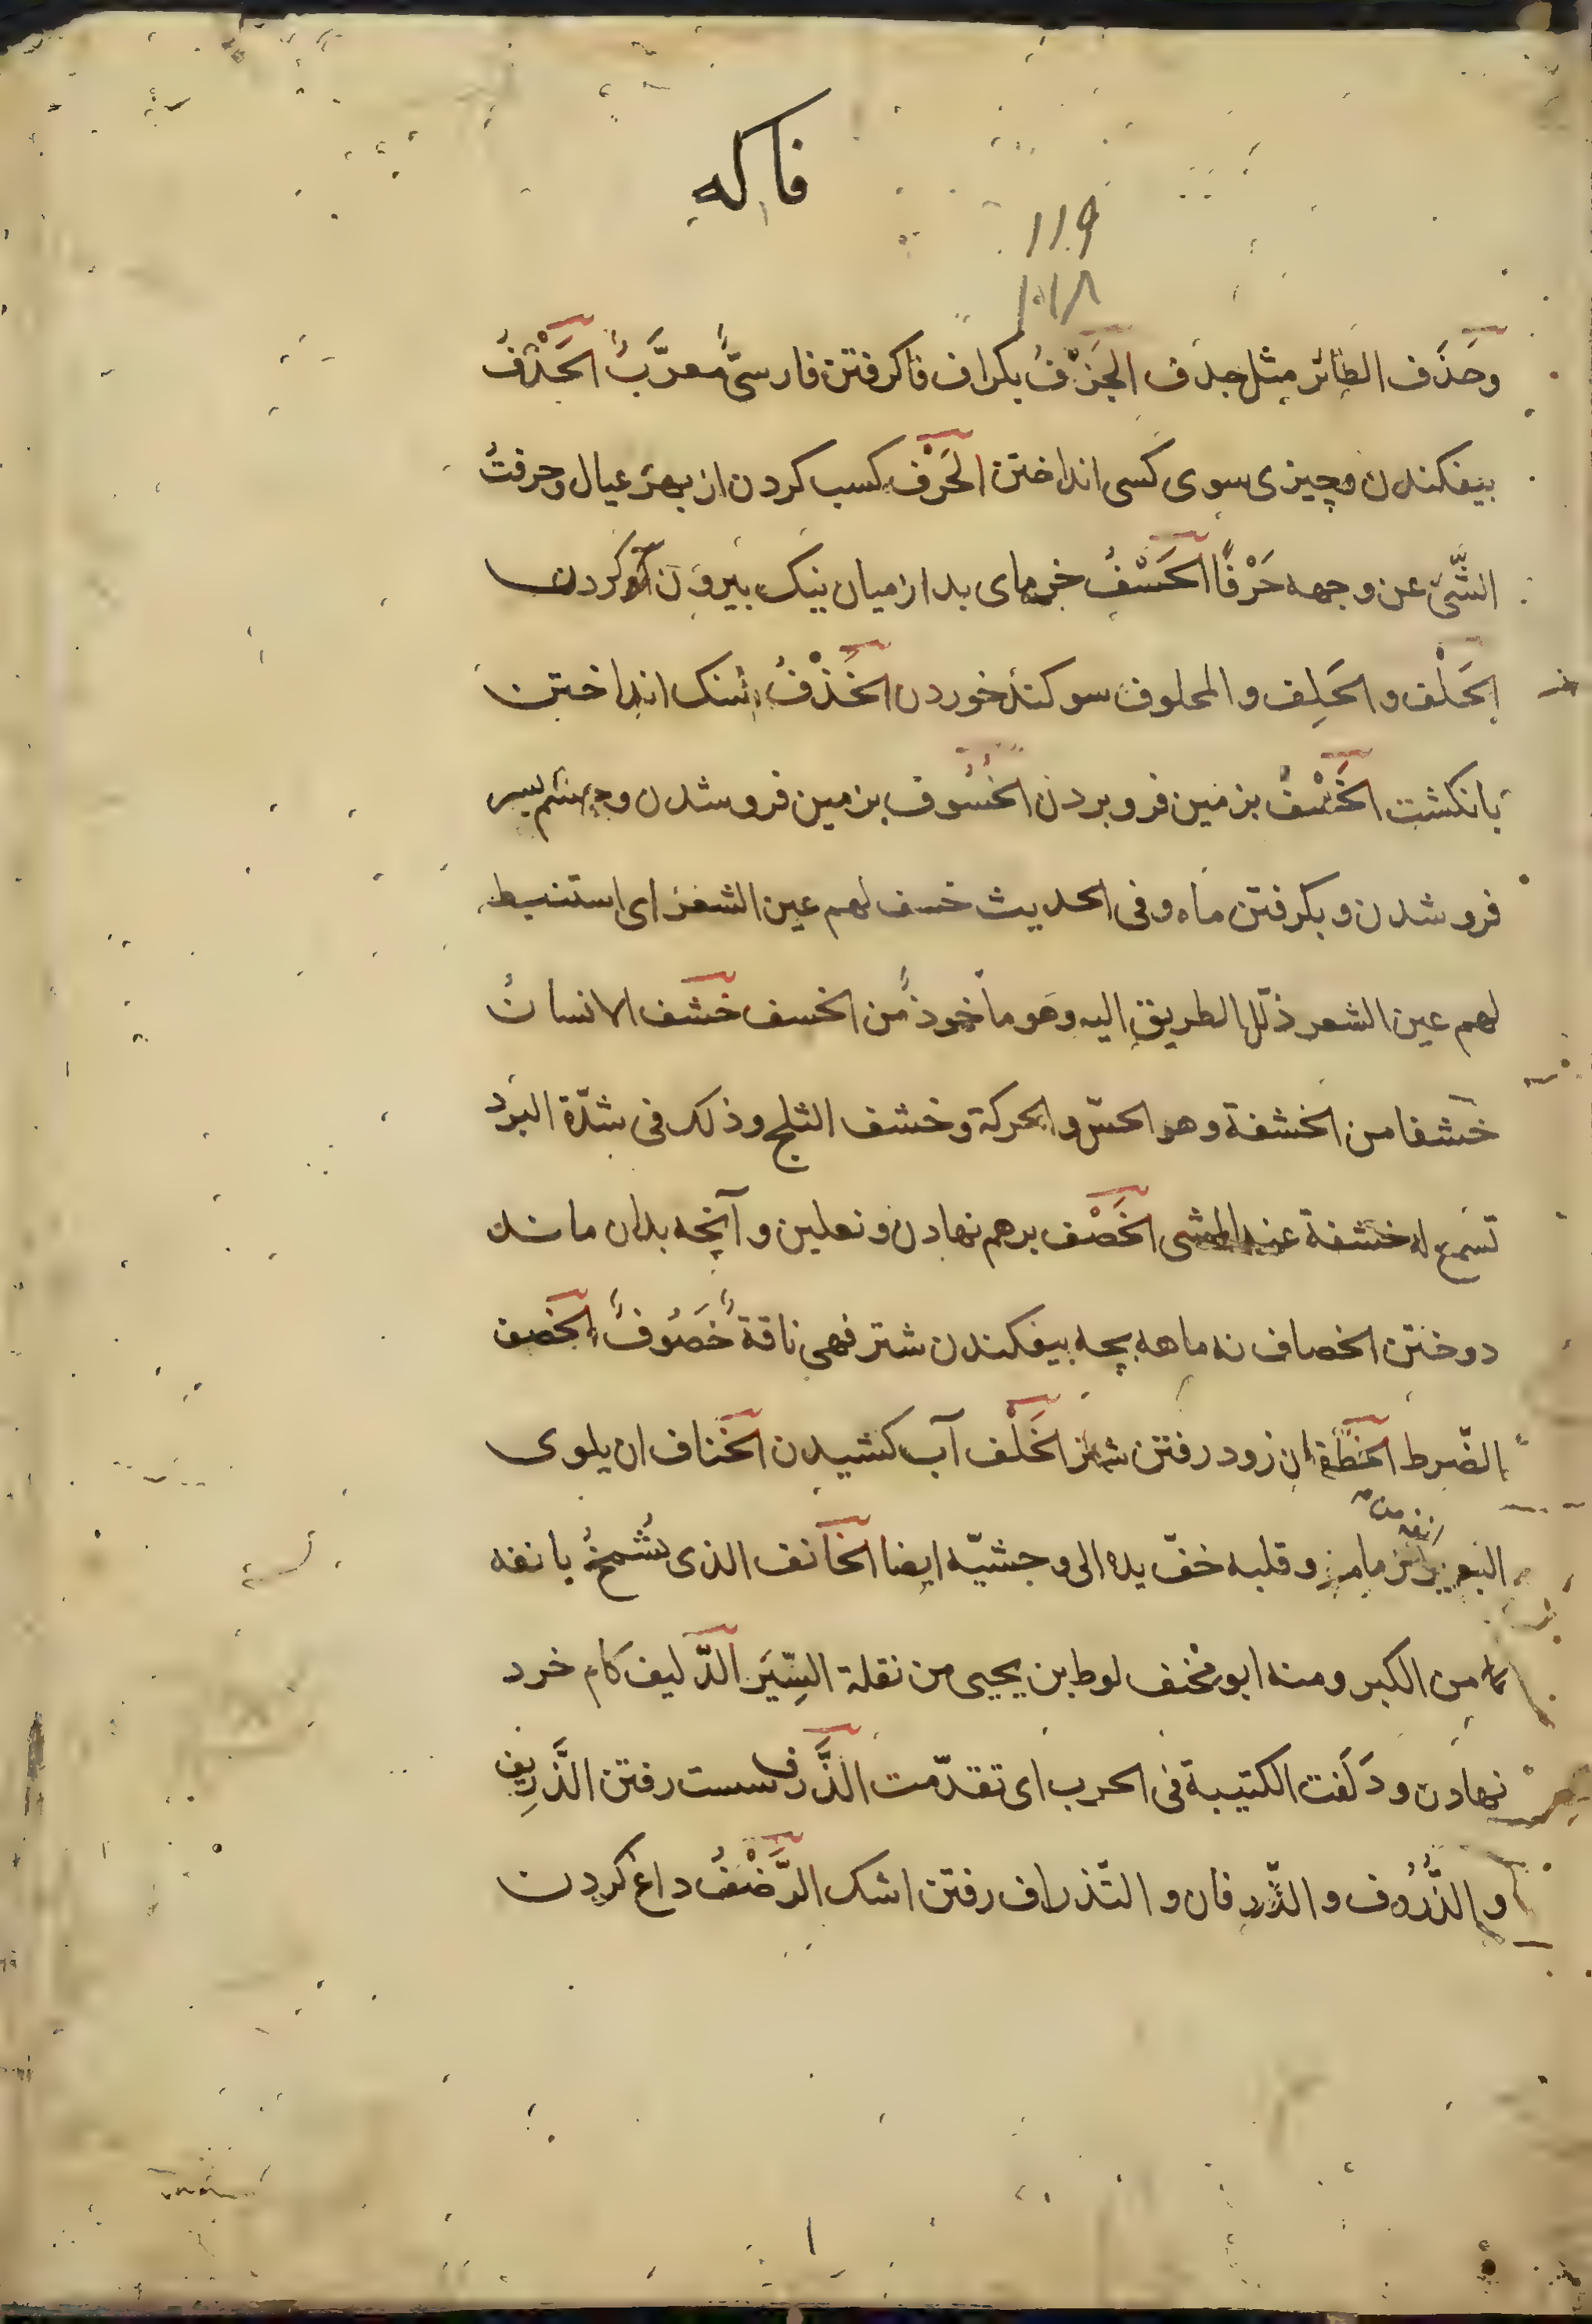 فاكه
١١٩
١٠١٨
وحَذَف الطائر مثل جدف الجَزْفُ بكزاف فاكرفتن فارسىٌّ معرَّبٌ الحَذْفُ
بيفكندن وچيزى سوى كسى انداختن الحَرْف كسب كردن از بهر عيال وحرفتُ
الشّىَٔ عن وجهه حَرْفًا الحَشْفُ خرماى بد از ميان نيك بيرون كردن
الحَلْف و الحَلِف و المحلوف سوكند خوردن الخَذْفُ سنك انداختن
بانكشت الخَسْفُ بزمين فرو بردن الخُسُوف بزمين فروشدن وچشم بسر
فروشدن و بكرفتن ماه وفى الحديث خسف لهم عين الشعر اى استنبط
لهم عين الشعر ذلّل الطريق اليه وهو ماخوذٌ من الخسف خشف الانسانُ
خشفا من الخشفة وهو الحسّ والحركة وخشف الثلج وذلك فى شدّة البرد
تسمع له خشفة عند المشى الخَصْف برهم نهادن و نعلين و آنچه بدان ماند
دوختن الخصاف نه ماهه بچه بيفكندن شتر فهى ناقة خَصُوفٌ الخضف
الضّرط الخطفان زود رفتن شتر الخَلْف آب كشيدن الخناف ان يلوى
البعير انفه من الزمام وقلبه خفّ يده الى وحشيّه ايضا الخَانف الذى يُشمخُ بانفه
من الكبر ومنه ابو مخنف لوط بن يحيى من نقلة السِّيَر الدّليف كام خرد
نهادن و دَلَفت الكتيبة فى الحرب اى تقدّمت الذَّرف سست رفتن الذَّرِيف
و الذُّرُوف و الذّرفان و التّذراف رفتن اشك الرَّضْفُ داغ كردن